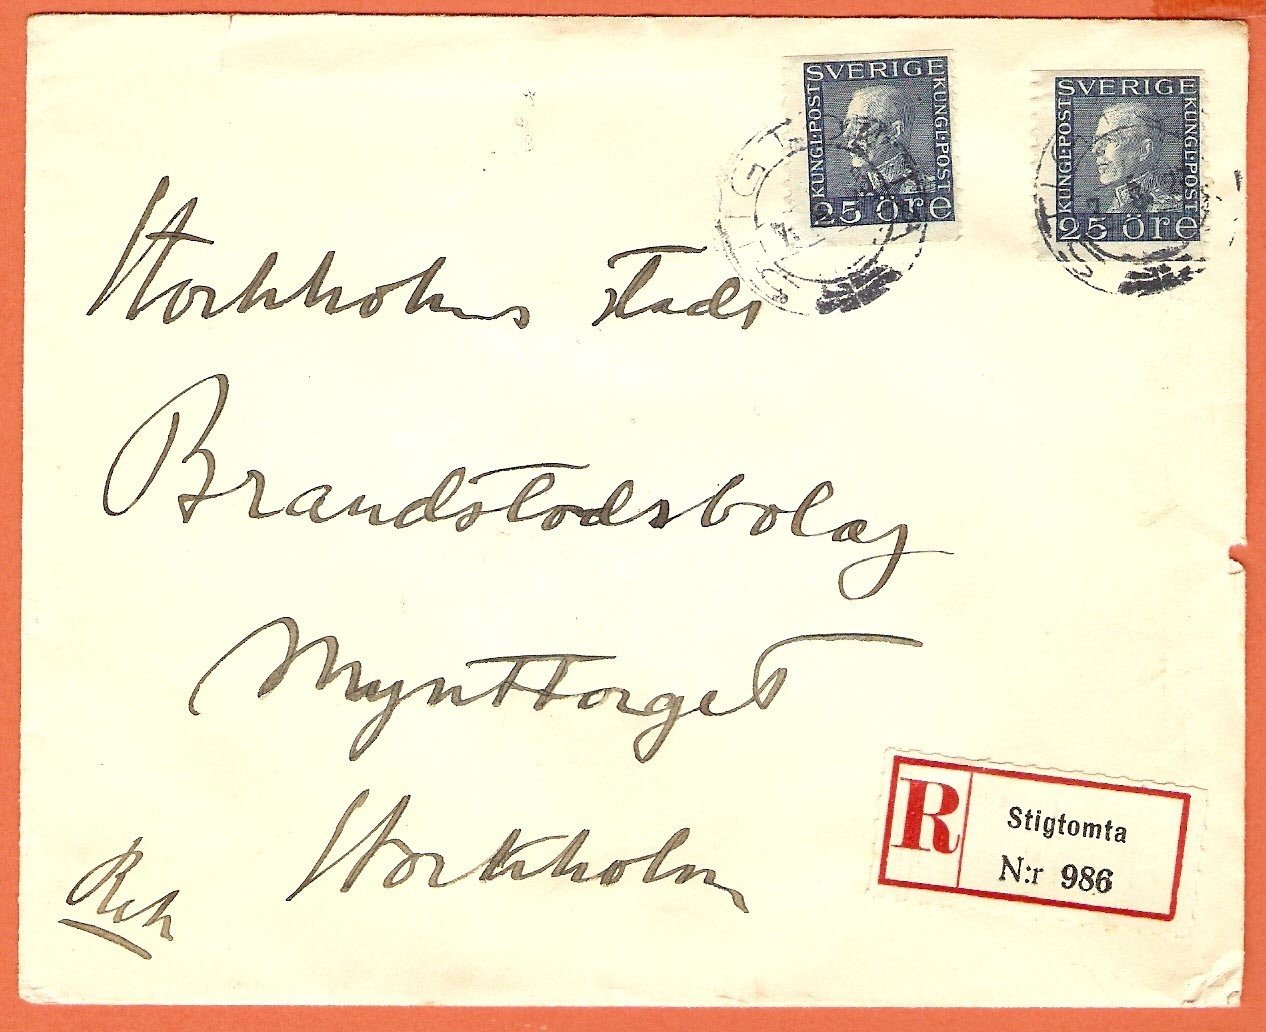 SVERIGE
KUNGL·POST
KUNGL·POST
25 öre
SVERIGE
KUNGL·POST
KUNGL·POST
25 öre
Stockholms Stads
Brandstodsbolag
Mynttorget
Stockholm
Rek
R
Stigtomta
N:r 986